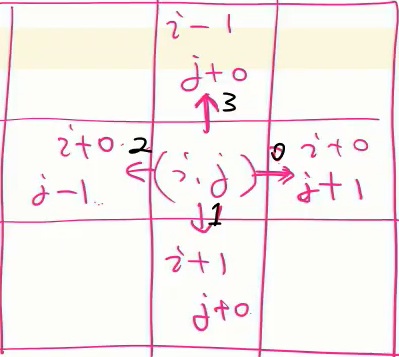 i-1
j+0
3
i+0 2 (i,j) 0 i+0
j-1 j+1
1
i+1
j+0